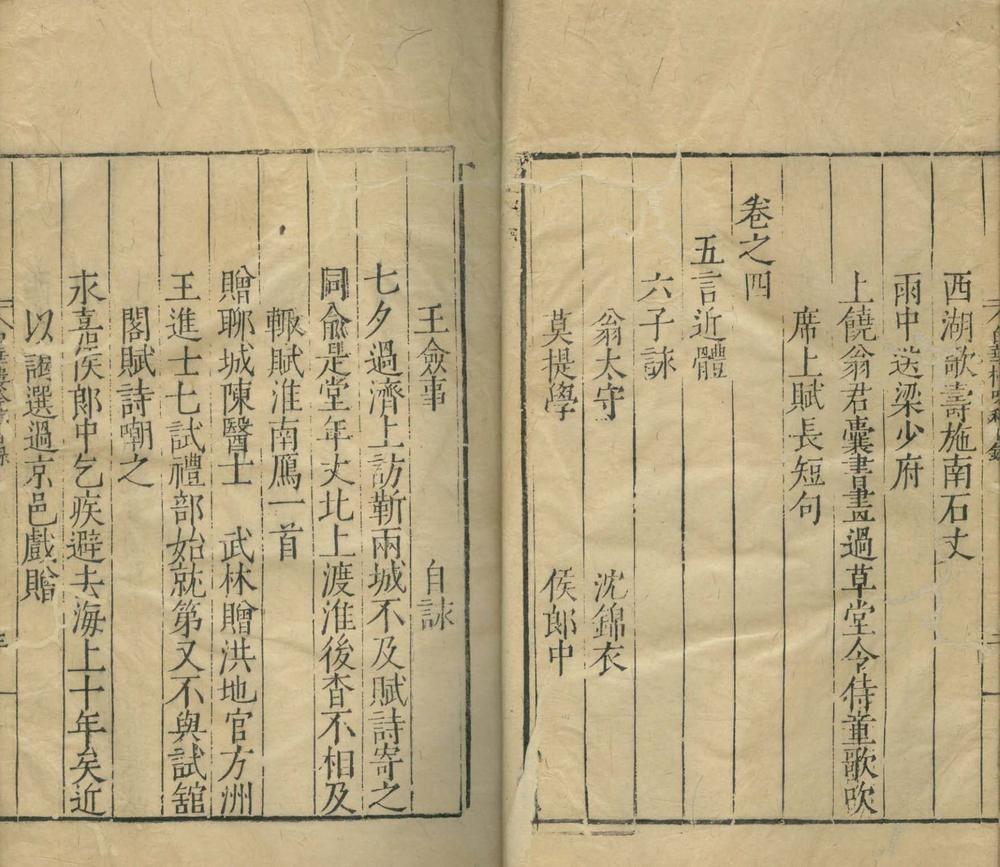 西湖歌壽施南石丈
雨中送梁少府
上饒翁君囊書畫過草堂令侍童歌吹
席上賦長短句
卷之四
五言近體
六子詠
翁太守 沈錦衣
莫提學 侯郎中
王僉事 自詠
七夕過濟上訪靳兩城不及賦詩寄之
同俞是堂年丈北上渡淮後杳不相及
輙賦淮南鴈一首
贈聊城陳醫士 武林贈洪地官方洲
王進士七試禮部始就第又不與試舘
閣賦詩嘲之
永嘉侯郎中乞疾避去海上十年矣近
以謁選過京邑戲贈